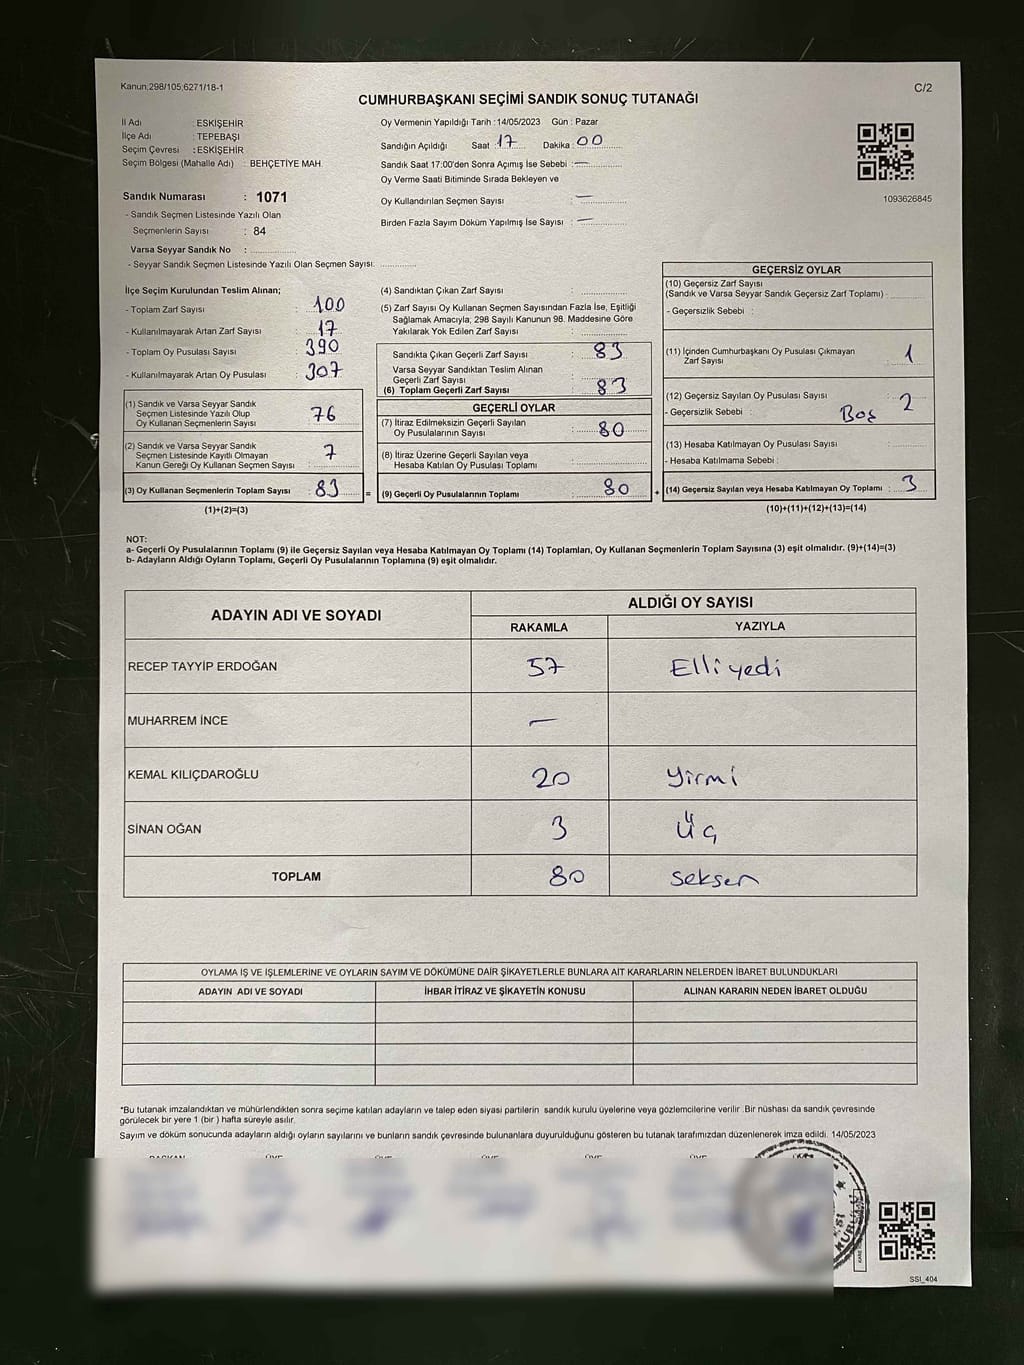 Kanun;298/105;6271/18-1
C/2
CUMHURBAŞKANI SEÇİMİ SANDIK SONUÇ TUTANAĞI
İl Adı : ESKİŞEHİR
İlçe Adı : TEPEBAŞI
Seçim Çevresi : ESKİŞEHİR
Seçim Bölgesi (Mahalle Adı) : BEHÇETİYE MAH.
Sandık Numarası : 1071
- Sandık Seçmen Listesinde Yazılı Olan
Seçmenlerin Sayısı : 84
Varsa Seyyar Sandık No :
- Seyyar Sandık Seçmen Listesinde Yazılı Olan Seçmen Sayısı:
Oy Vermenin Yapıldığı Tarih :14/05/2023 Gün : Pazar
Sandığın Açıldığı Saat : 17 Dakika : 00
Sandık Saat 17:00'den Sonra Açımış İse Sebebi : —
Oy Verme Saati Bitiminde Sırada Bekleyen ve
Oy Kullandırılan Seçmen Sayısı : —
Birden Fazla Sayım Döküm Yapılmış İse Sayısı : —
1093626845
İlçe Seçim Kurulundan Teslim Alınan;
- Toplam Zarf Sayısı : 100
- Kullanılmayarak Artan Zarf Sayısı : 17
- Toplam Oy Pusulası Sayısı : 390
- Kullanılmayarak Artan Oy Pusulası : 307
(1) Sandık ve Varsa Seyyar Sandık
Seçmen Listesinde Yazılı Olup
Oy Kullanan Seçmenlerin Sayısı : 76
(2) Sandık ve Varsa Seyyar Sandık
Seçmen Listesinde Kayıtlı Olmayan
Kanun Gereği Oy Kullanan Seçmen Sayısı : 7
(3) Oy Kullanan Seçmenlerin Toplam Sayısı : 83
(1)+(2)=(3)
(4) Sandıktan Çıkan Zarf Sayısı :
(5) Zarf Sayısı Oy Kullanan Seçmen Sayısından Fazla İse, Eşitliği
Sağlamak Amacıyla, 298 Sayılı Kanunun 98. Maddesine Göre
Yakılarak Yok Edilen Zarf Sayısı :
Sandıkta Çıkan Geçerli Zarf Sayısı : 83
Varsa Seyyar Sandıktan Teslim Alınan
Geçerli Zarf Sayısı :
(6) Toplam Geçerli Zarf Sayısı : 83
GEÇERLİ OYLAR
(7) İtiraz Edilmeksizin Geçerli Sayılan
Oy Pusulalarının Sayısı : 80
(8) İtiraz Üzerine Geçerli Sayılan veya
Hesaba Katılan Oy Pusulası Toplamı :
= (9) Geçerli Oy Pusulalarının Toplamı : 80 +
GEÇERSİZ OYLAR
(10) Geçersiz Zarf Sayısı
(Sandık ve Varsa Seyyar Sandık Geçersiz Zarf Toplamı) :
- Geçersizlik Sebebi :
(11) İçinden Cumhurbaşkanı Oy Pusulası Çıkmayan
Zarf Sayısı : 1
(12) Geçersiz Sayılan Oy Pusulası Sayısı : 2
- Geçersizlik Sebebi : Boş
(13) Hesaba Katılmayan Oy Pusulası Sayısı :
- Hesaba Katılmama Sebebi :
(14) Geçersiz Sayılan veya Hesaba Katılmayan Oy Toplamı : 3
(10)+(11)+(12)+(13)=(14)
NOT:
a- Geçerli Oy Pusulalarının Toplamı (9) ile Geçersiz Sayılan veya Hesaba Katılmayan Oy Toplamı (14) Toplamları, Oy Kullanan Seçmenlerin Toplam Sayısına (3) eşit olmalıdır. (9)+(14)=(3)
b- Adayların Aldığı Oyların Toplamı, Geçerli Oy Pusulalarının Toplamına (9) eşit olmalıdır.
ADAYIN ADI VE SOYADI
ALDIĞI OY SAYISI
RAKAMLA YAZIYLA
RECEP TAYYİP ERDOĞAN 57 Elli yedi
MUHARREM İNCE —
KEMAL KILIÇDAROĞLU 20 Yirmi
SİNAN OĞAN 3 Üç
TOPLAM 80 Seksen
OYLAMA İŞ VE İŞLEMLERİNE VE OYLARIN SAYIM VE DÖKÜMÜNE DAİR ŞİKAYETLERLE BUNLARA AİT KARARLARIN NELERDEN İBARET BULUNDUKLARI
ADAYIN ADI VE SOYADI İHBAR İTİRAZ VE ŞİKAYETİN KONUSU ALINAN KARARIN NEDEN İBARET OLDUĞU
*Bu tutanak imzalandıktan ve mühürlendikten sonra seçime katılan adayların ve talep eden siyasi partilerin sandık kurulu üyelerine veya gözlemcilerine verilir .Bir nüshası da sandık çevresinde
görülecek bir yere 1 (bir ) hafta süreyle asılır.
Sayım ve döküm sonucunda adayların aldığı oyların sayılarını ve bunların sandık çevresinde bulunanlara duyurulduğunu gösteren bu tutanak tarafımızdan düzenlenerek imza edildi. 14/05/2023
SSI_404